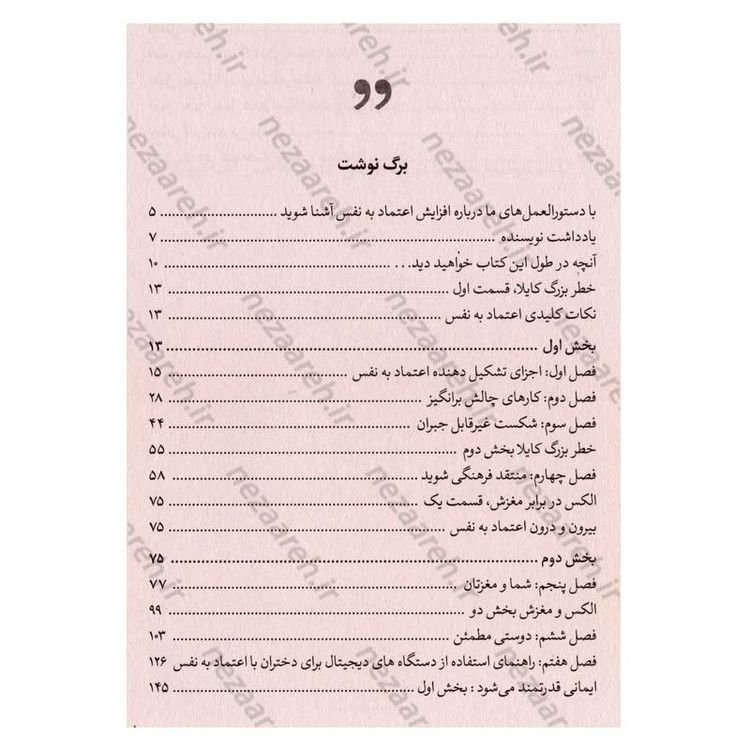 برگ نوشت
با دستورالعمل‌های ما درباره افزایش اعتماد به نفس آشنا شوید ................ ۵
یادداشت نویسنده ................ ۷
آنچه در طول این کتاب خواهید دید... ................ ۱۰
خطر بزرگ کایلا، قسمت اول ................ ۱۳
نکات کلیدی اعتماد به نفس ................ ۱۳
بخش اول ................ ۱۳
فصل اول: اجزای تشکیل دهنده اعتماد به نفس ................ ۱۵
فصل دوم: کارهای چالش برانگیز ................ ۲۸
فصل سوم: شکست غیرقابل جبران ................ ۴۴
خطر بزرگ کایلا بخش دوم ................ ۵۵
فصل چهارم: منتقد فرهنگی شوید ................ ۵۸
الکس در برابر مغزش، قسمت یک ................ ۷۵
بیرون و درون اعتماد به نفس ................ ۷۵
بخش دوم ................ ۷۵
فصل پنجم: شما و مغزتان ................ ۷۷
الکس و مغزش بخش دو ................ ۹۹
فصل ششم: دوستی مطمئن ................ ۱۰۳
فصل هفتم: راهنمای استفاده از دستگاه های دیجیتال برای دختران با اعتماد به نفس ۱۲۶
ایمانی قدرتمند می‌شود : بخش اول ................ ۱۴۵
nezaareh.ir